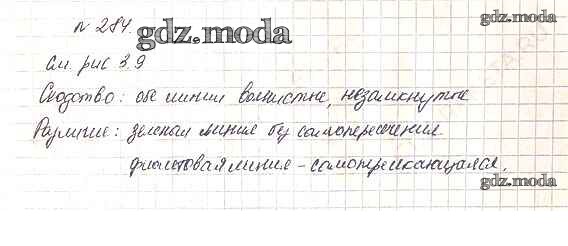 gdz.moda
№ 284.
gdz.moda
См. рис 3.9
Сходство: обе линии волнистые, незамкнутые
Различие: зеленая линия без самопересечения
фиолетовая линия - самопересекающаяся.
gdz.moda